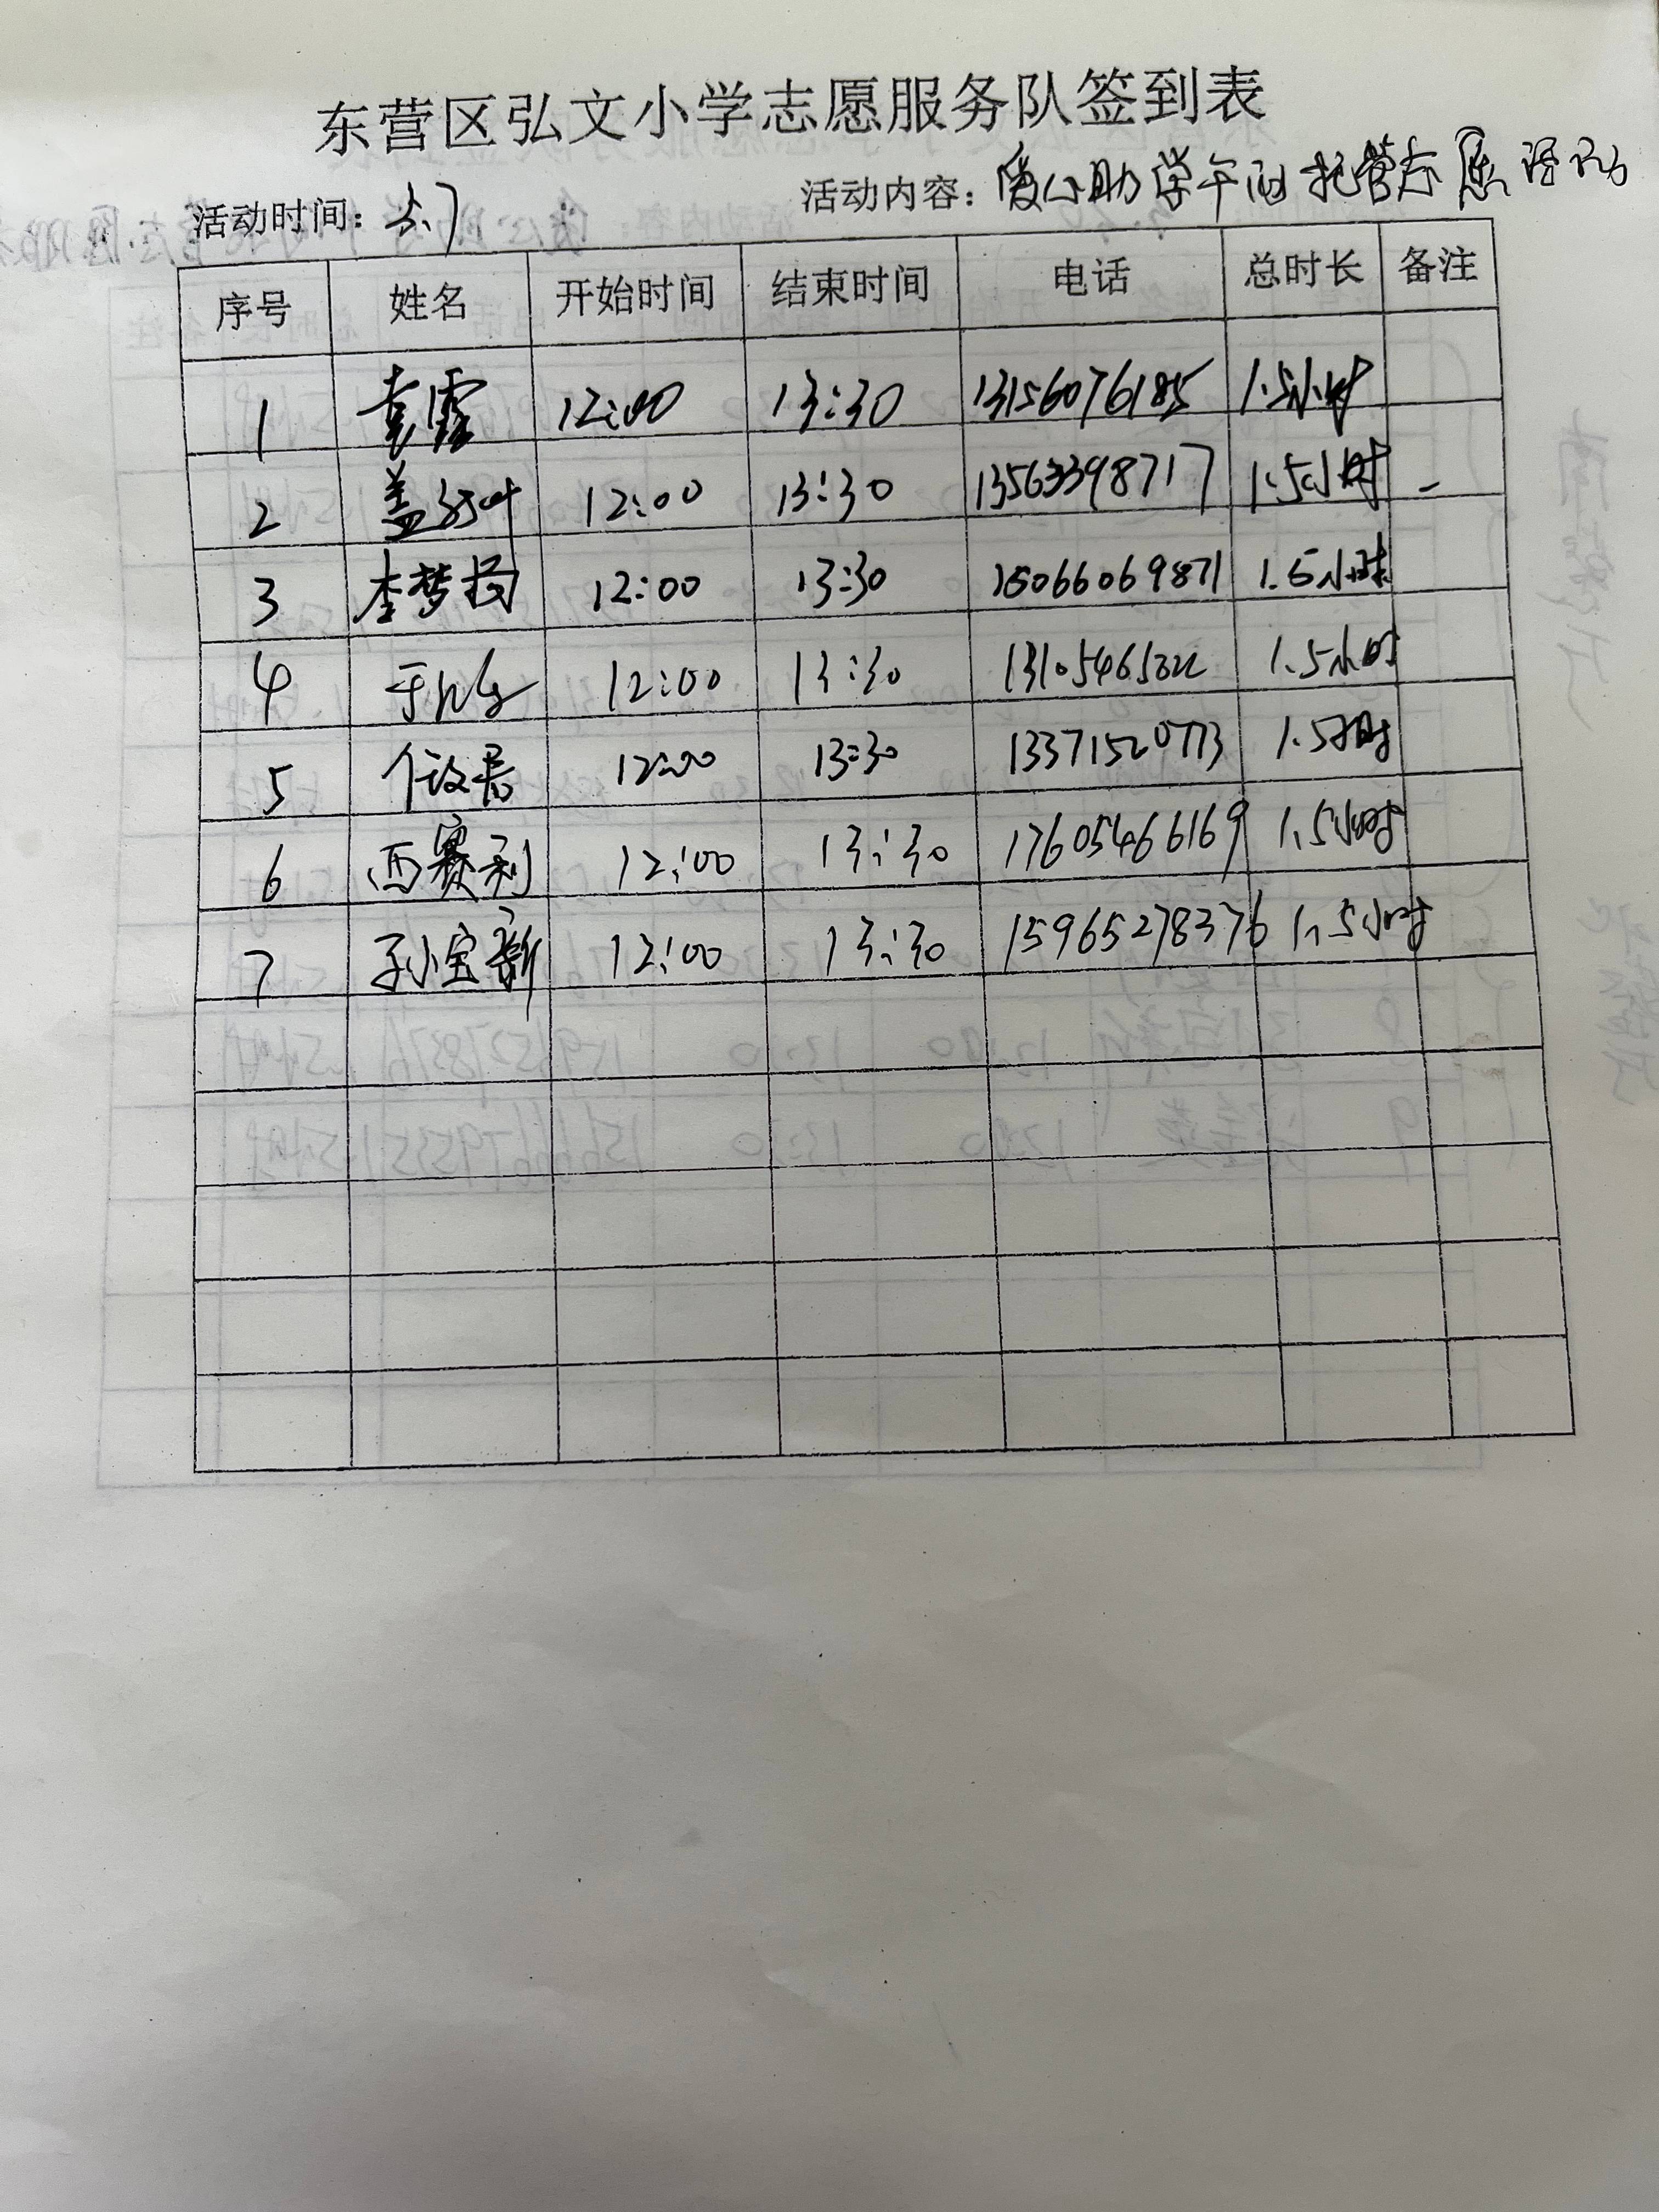 东营区弘文小学志愿服务队签到表
活动时间: 活动内容: 爱心助学午间托管志愿活动
序号 姓名 开始时间 结束时间 电话 总时长 备注
1 袁霞 12:00 13:30 13156076185 1.5小时
2 盖 12:00 13:30 13563398717 1.5小时
3 李梦 12:00 13:30 15066069871 1.5小时
4 于 12:00 13:30 1.5小时
5 12:00 13:30 13371520773 1.5小时
6 西赛利 12:00 13:30 17605466169 1.5小时
7 孙宝新 12:00 13:30 15965278376 1.5小时